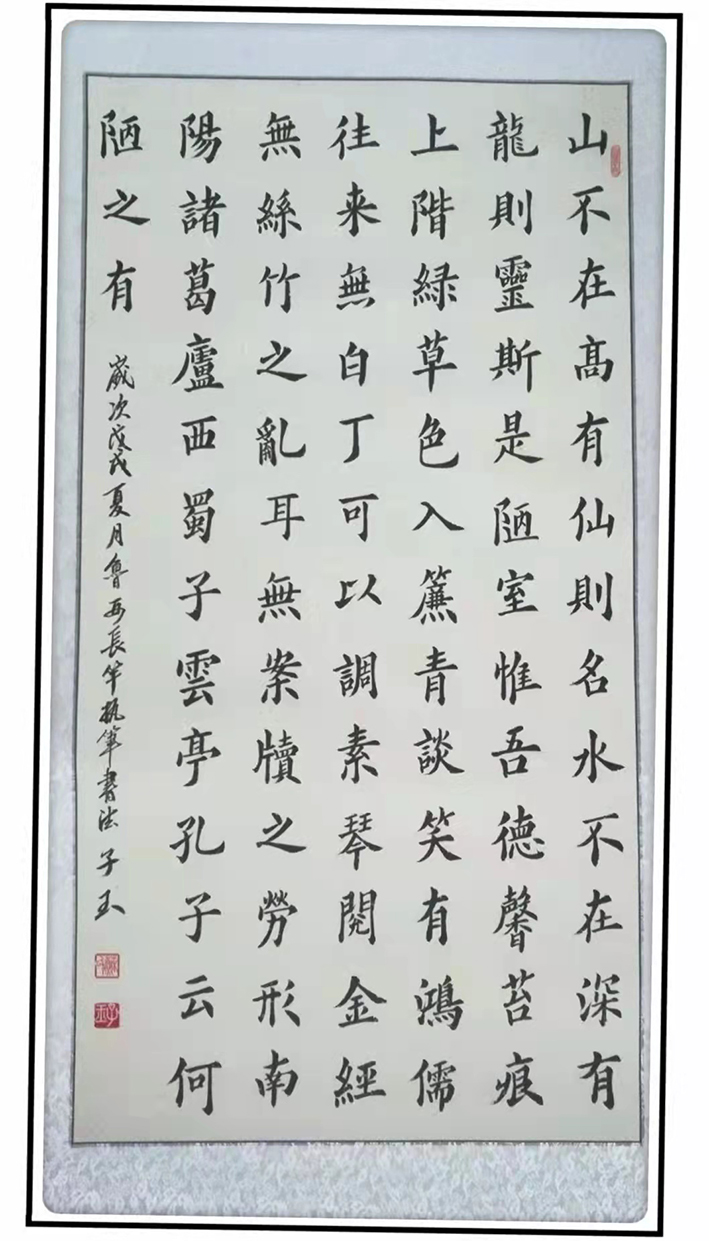 山不在高有仙則名水不在深有
龍則靈斯是陋室惟吾德馨苔痕
上階緑草色入簾青談笑有鴻儒
往来無白丁可以調素琴閱金經
無絲竹之亂耳無案牘之勞形南
陽諸葛廬西蜀子雲亭孔子云何
陋之有
歲次戊戌夏月魯西長竿執筆書法子玉